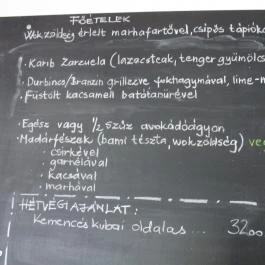 FŐÉTELEK
Wok zöldség érlelt marhafartővel, csípős tápióka
• Karib Zarzuela (lazacsteak, tenger gyümölcs
• Durbincs/Branzin grillezve fokhagymával, lime-
• Füstölt kacsamell batátapürével
• Egész vagy 1/2 szűz avokádóágyon
• Madárfészek (bami tészta, wokzöldség) ve
• csirkével
• garnélával
• kacsával
• marhával
HÉTVÉGI AJÁNLAT:
Kemencés kubai oldalas... 3200